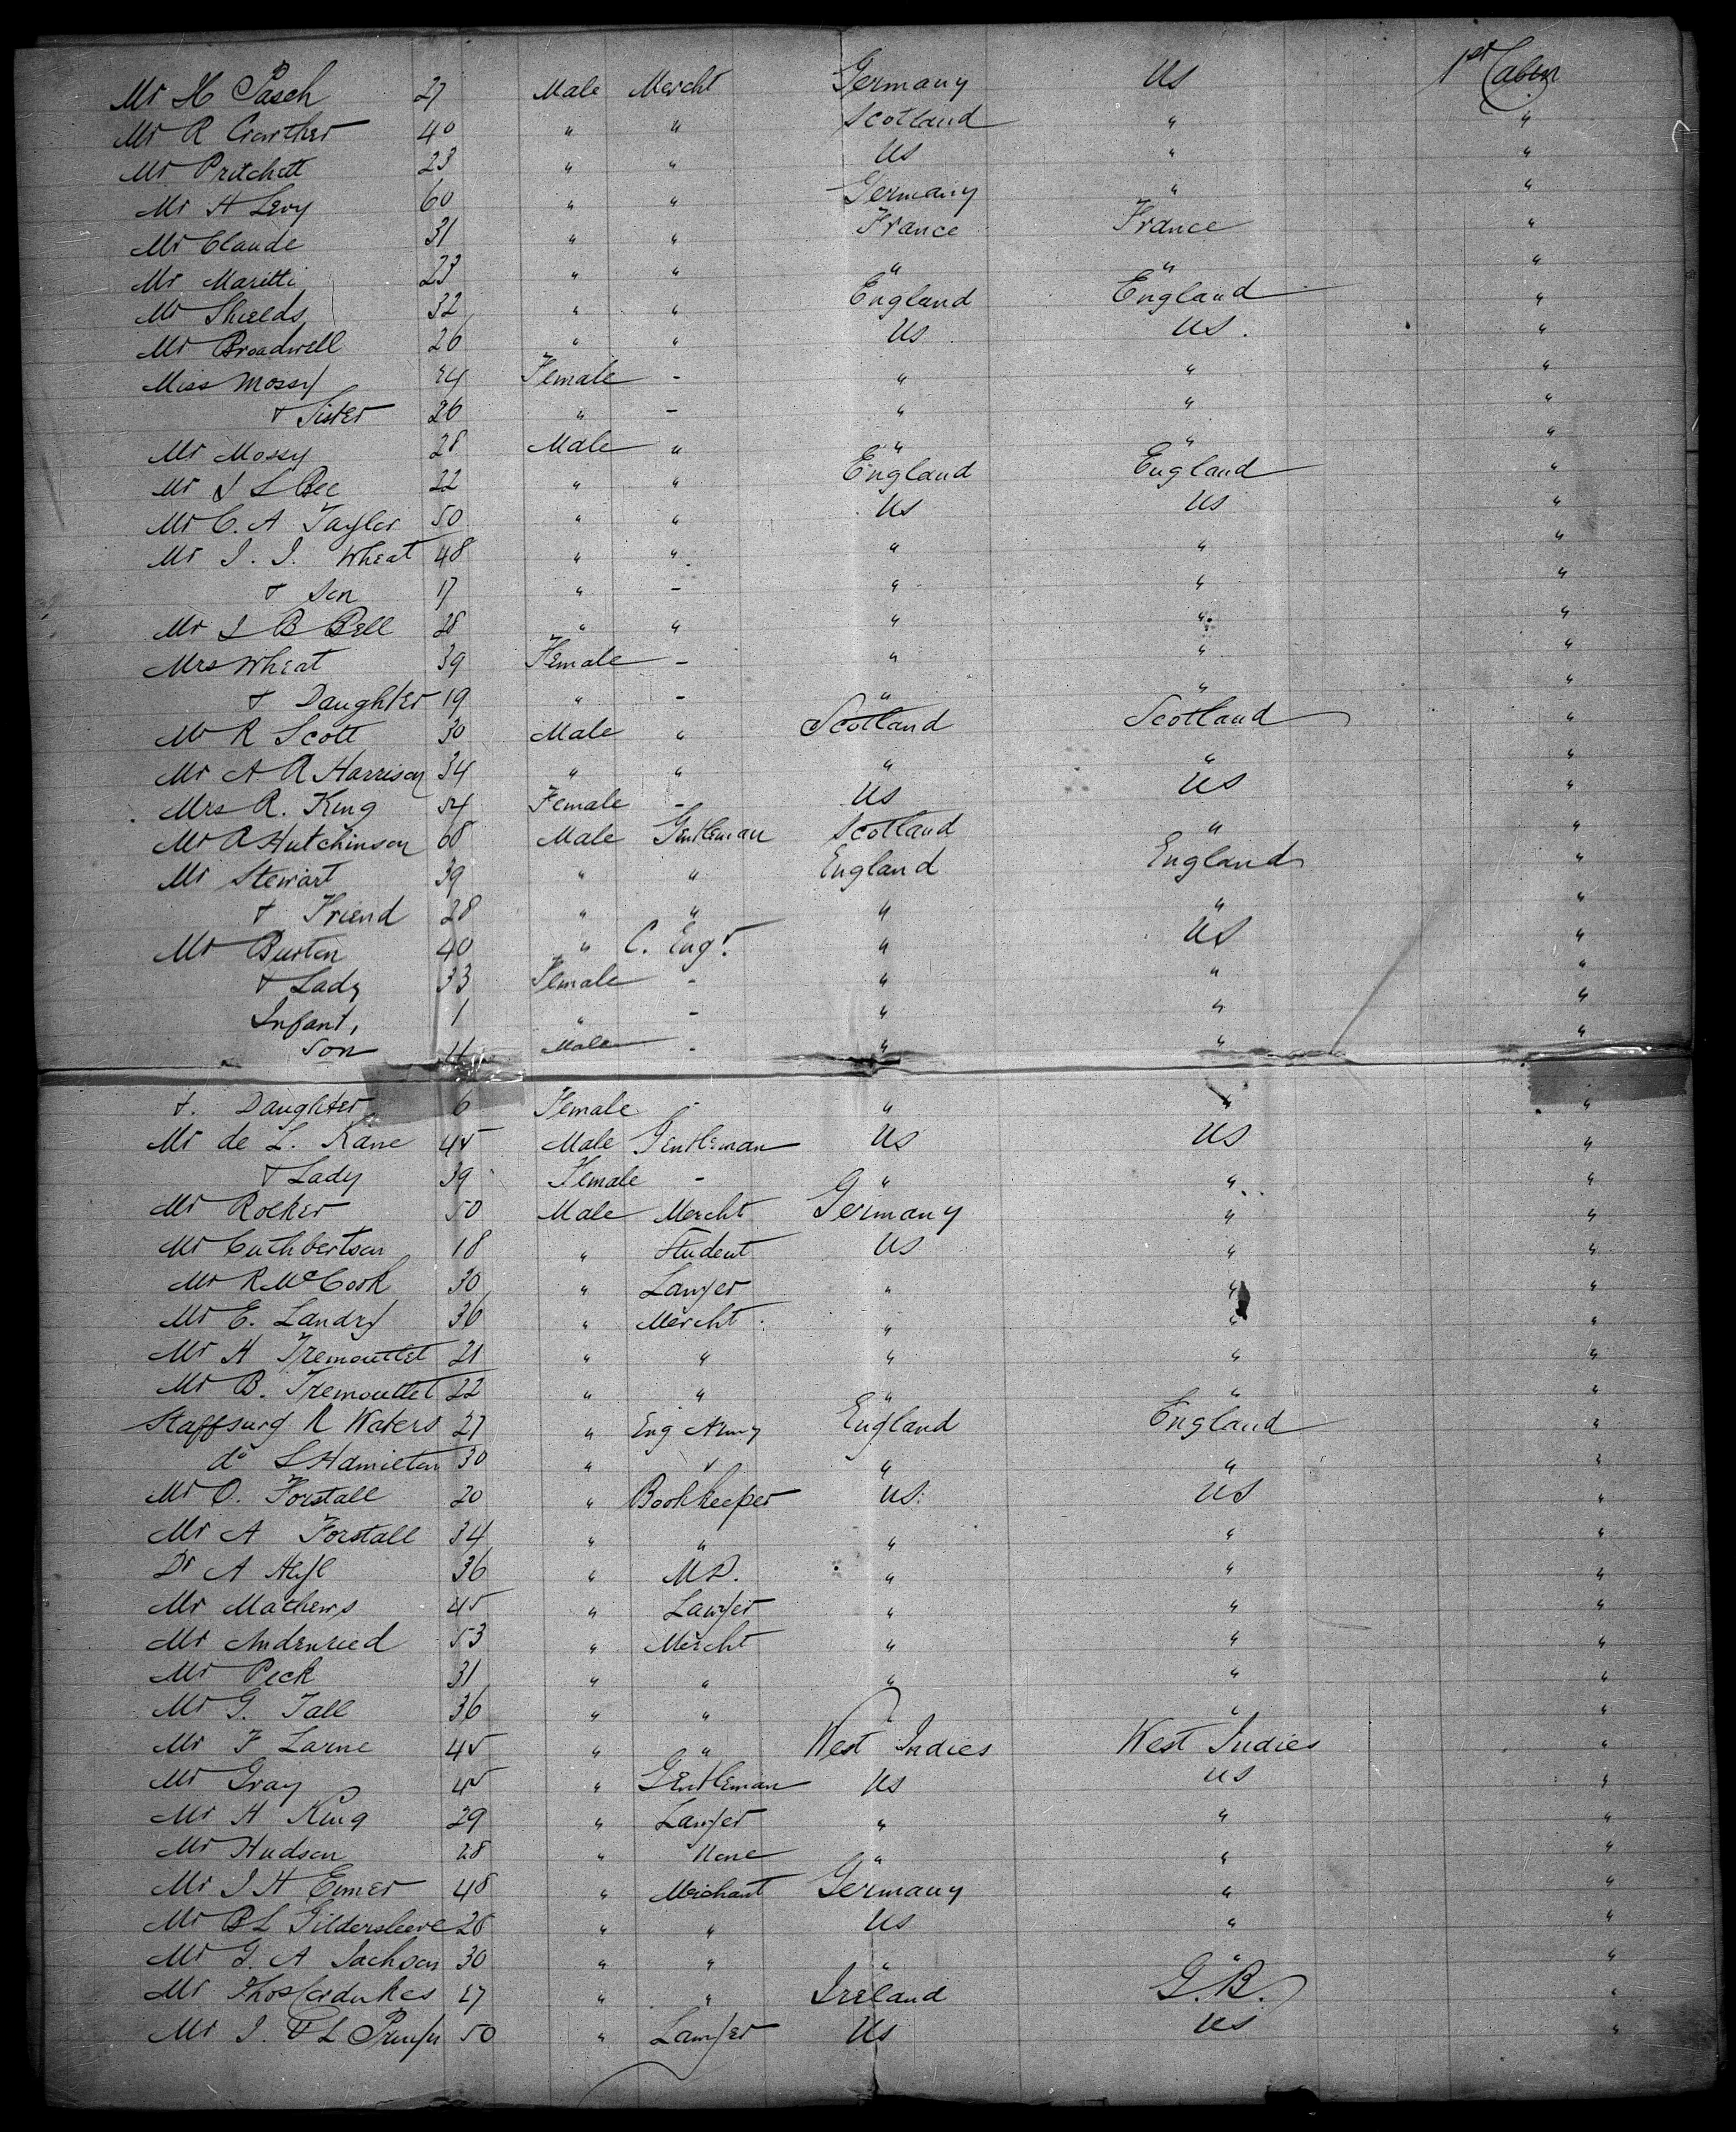 Mr H Pasch 27 Male Mercht Germany US 1st Cabin
Mr R Crowther 40 " " Scotland " "
Mr Pritchett 23 " " US " "
Mr H Levy 60 " " Germany " "
Mr Claude 31 " " France France "
Mr Maritti 23 " " " " "
Mr Shields 32 " " England England "
Mr Broadwell 26 " " US US. "
Miss Mossy 24 Female - " " "
& Sister 26 " - " " "
Mr Mossy 28 Male " " " "
Mr J L Bee 22 " " England England "
Mr C. A Taylor 50 " " US US "
Mr J. J. Wheat 48 " " " " "
& Son 17 " - " " "
Mr J B Bell 28 " " " " "
Mrs Wheat 39 Female - " " "
& Daughter 19 " - " " "
Mr R Scott 30 Male " Scotland Scotland "
Mr A R Harrison 34 " " " " "
Mrs R. King 54 Female - US US "
Mr R Hutchinson 68 Male Gentleman Scotland " "
Mr Stewart 39 " " England England "
& Friend 28 " " " " "
Mr Burton 40 " C. Engr. " US "
& Lady 33 Female - " " "
Infant, 1 " - " " "
Son 4 Male - " " "
&. Daughter 6 Female - " " "
Mr de L. Kane 45 Male Gentleman US US "
& Lady 39 Female - " " "
Mr Roeker 50 Male Mercht Germany " "
Mr Cuthbertson 18 " Student US " "
Mr R McCook 30 " Lawyer " " "
Mr E. Landry 36 " Mercht. " " "
Mr H Tremoullet 21 " " " " "
Mr B. Tremoullet 22 " " " " "
Staffsurg R Waters 27 " Eng Army England England "
do L Hamilton 30 " " " " "
Mr O. Forstall 20 " Bookkeeper US. US "
Mr A Forstall 34 " " " " "
Dr A 36 " M D. " " "
Mr Mathews 45 " Lawyer " " "
Mr Audenried 53 " Mercht " " "
Mr Peck 31 " " " " "
Mr G. Tall 36 " " " "
Mr F Larue 45 " " West Indies West Indies "
Mr Gray 45 " Gentleman US US "
Mr H King 29 " Lawyer " " "
Mr Hudson 28 " None " " "
Mr J H Eimer 48 " Merchant Germany " "
Mr B L Gildersleeve 28 " " US " "
Mr G. A Jackson 30 " " " " "
Mr Thos Cordukes 27 " " Ireland G.B. "
Mr J. 50 " Lawyer US US "